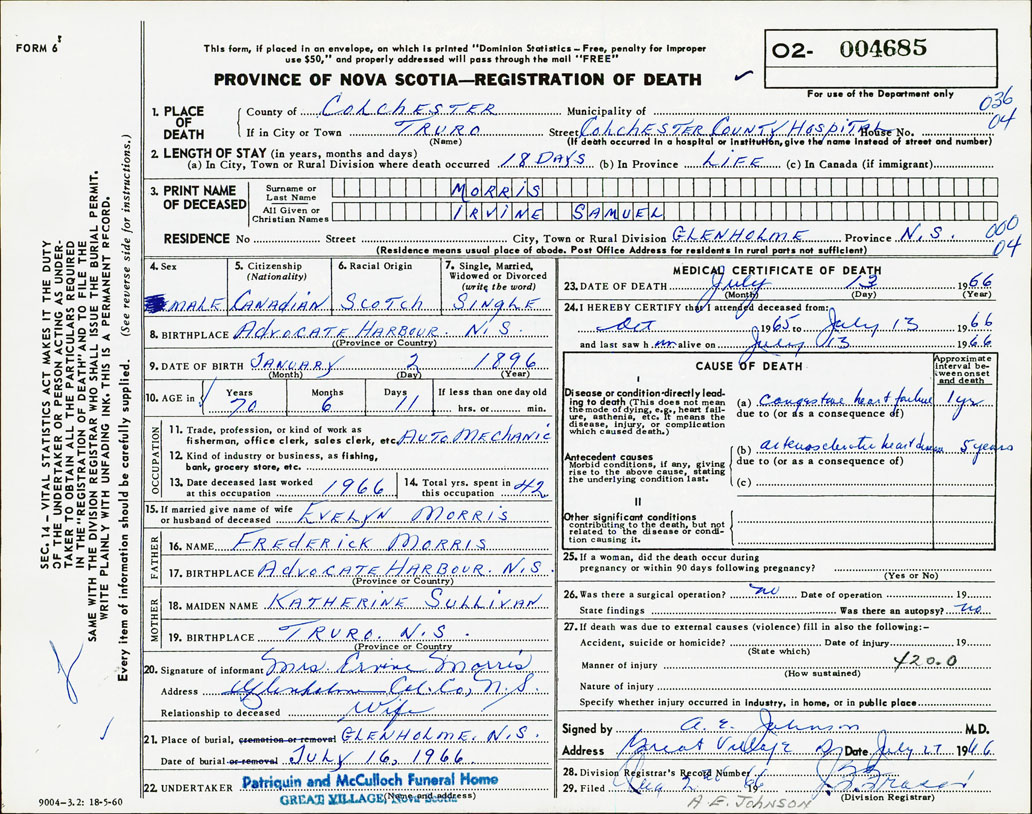 FORM 6
This form, if placed in an envelope, on which is printed "Dominion Statistics – Free, penalty for improper
use $50," and properly addressed will pass through the mail "FREE"
PROVINCE OF NOVA SCOTIA—REGISTRATION OF DEATH
O2- 004685
For use of the Department only
036
04
1. PLACE OF DEATH
County of COLCHESTER Municipality of
If in City or Town TRURO Street COLCHESTER COUNTY HOSPITAL House No.
(Name) (If death occurred in a hospital or institution, give the name instead of street and number)
2. LENGTH OF STAY (in years, months and days)
(a) In City, Town or Rural Division where death occurred 18 DAYS (b) In Province LIFE (c) In Canada (if immigrant)
3. PRINT NAME OF DECEASED
Surname or Last Name MORRIS
All Given or Christian Names IRVINE SAMUEL
RESIDENCE No Street City, Town or Rural Division GLENHOLME Province N.S.
000
04
(Residence means usual place of abode. Post Office Address for residents in rural parts not sufficient)
4. Sex MALE
5. Citizenship (Nationality) CANADIAN
6. Racial Origin SCOTCH
7. Single, Married, Widowed or Divorced (write the word) SINGLE
8. BIRTHPLACE ADVOCATE HARBOUR. N.S.
(Province or Country)
9. DATE OF BIRTH JANUARY 2 1896
(Month) (Day) (Year)
10. AGE in Years 70 Months 6 Days 11 If less than one day old hrs. or min.
OCCUPATION
11. Trade, profession, or kind of work as
fisherman, office clerk, sales clerk, etc. AUTO MECHANIC
12. Kind of industry or business, as fishing,
bank, grocery store, etc.
13. Date deceased last worked at this occupation 1966
14. Total yrs. spent in this occupation 42
15. If married give name of wife or husband of deceased EVELYN MORRIS
FATHER
16. NAME FREDERICK MORRIS
17. BIRTHPLACE ADVOCATE HARBOUR. N.S.
(Province or Country)
MOTHER
18. MAIDEN NAME KATHERINE SULLIVAN
19. BIRTHPLACE TRURO. N.S.
(Province or Country)
20. Signature of informant Mrs. Ervine Morris
Address Glenholme Col. Co, N.S.
Relationship to deceased Wife
21. Place of burial, cremation or removal GLENHOLME. N.S.
Date of burial or removal JULY 16, 1966
22. UNDERTAKER Patriquin and McCulloch Funeral Home
GREAT VILLAGE, Nova Scotia
(Name and address)
9004–3.2: 18-5-60
MEDICAL CERTIFICATE OF DEATH
23. DATE OF DEATH July 13 1966
(Month) (Day) (Year)
24. I HEREBY CERTIFY that I attended deceased from:
Oct 1965 to July 13 1966
and last saw h im alive on July 13 1966
CAUSE OF DEATH
Approximate interval between onset and death
I
Disease or condition directly leading to death (This does not mean the mode of dying, e.g., heart failure, asthenia, etc. It means the disease, injury, or complication which caused death.)
(a) Congestive heart failure 1 yr
due to (or as a consequence of)
Antecedent causes
Morbid conditions, if any, giving rise to the above cause, stating the underlying condition last.
(b) arteriosclerotic heart disease 5 years
due to (or as a consequence of)
(c)
II
Other significant conditions contributing to the death, but not related to the disease or condition causing it.
25. If a woman, did the death occur during
pregnancy or within 90 days following pregnancy?
(Yes or No)
26. Was there a surgical operation? no Date of operation 19
State findings Was there an autopsy? no
27. If death was due to external causes (violence) fill in also the following:–
Accident, suicide or homicide? Date of injury 19
(State which)
Manner of injury 420.0
(How sustained)
Nature of injury
Specify whether injury occurred in industry, in home, or in public place
Signed by A. E. Johnson M.D.
Address Great Village Date July 27 1966
28. Division Registrar's Record Number
29. Filed Aug 2nd 1966
(Division Registrar)
A E. JOHNSON
SEC. 14 – VITAL STATISTICS ACT MAKES IT THE DUTY
OF THE UNDERTAKER OR PERSON ACTING AS UNDERTAKER TO OBTAIN ALL THE PARTICULARS REQUIRED
IN THE "REGISTRATION OF DEATH" AND TO FILE THE
SAME WITH THE DIVISION REGISTRAR WHO SHALL ISSUE THE BURIAL PERMIT.
WRITE PLAINLY WITH UNFADING INK. THIS IS A PERMANENT RECORD.
Every item of information should be carefully supplied. (See reverse side for instructions.)